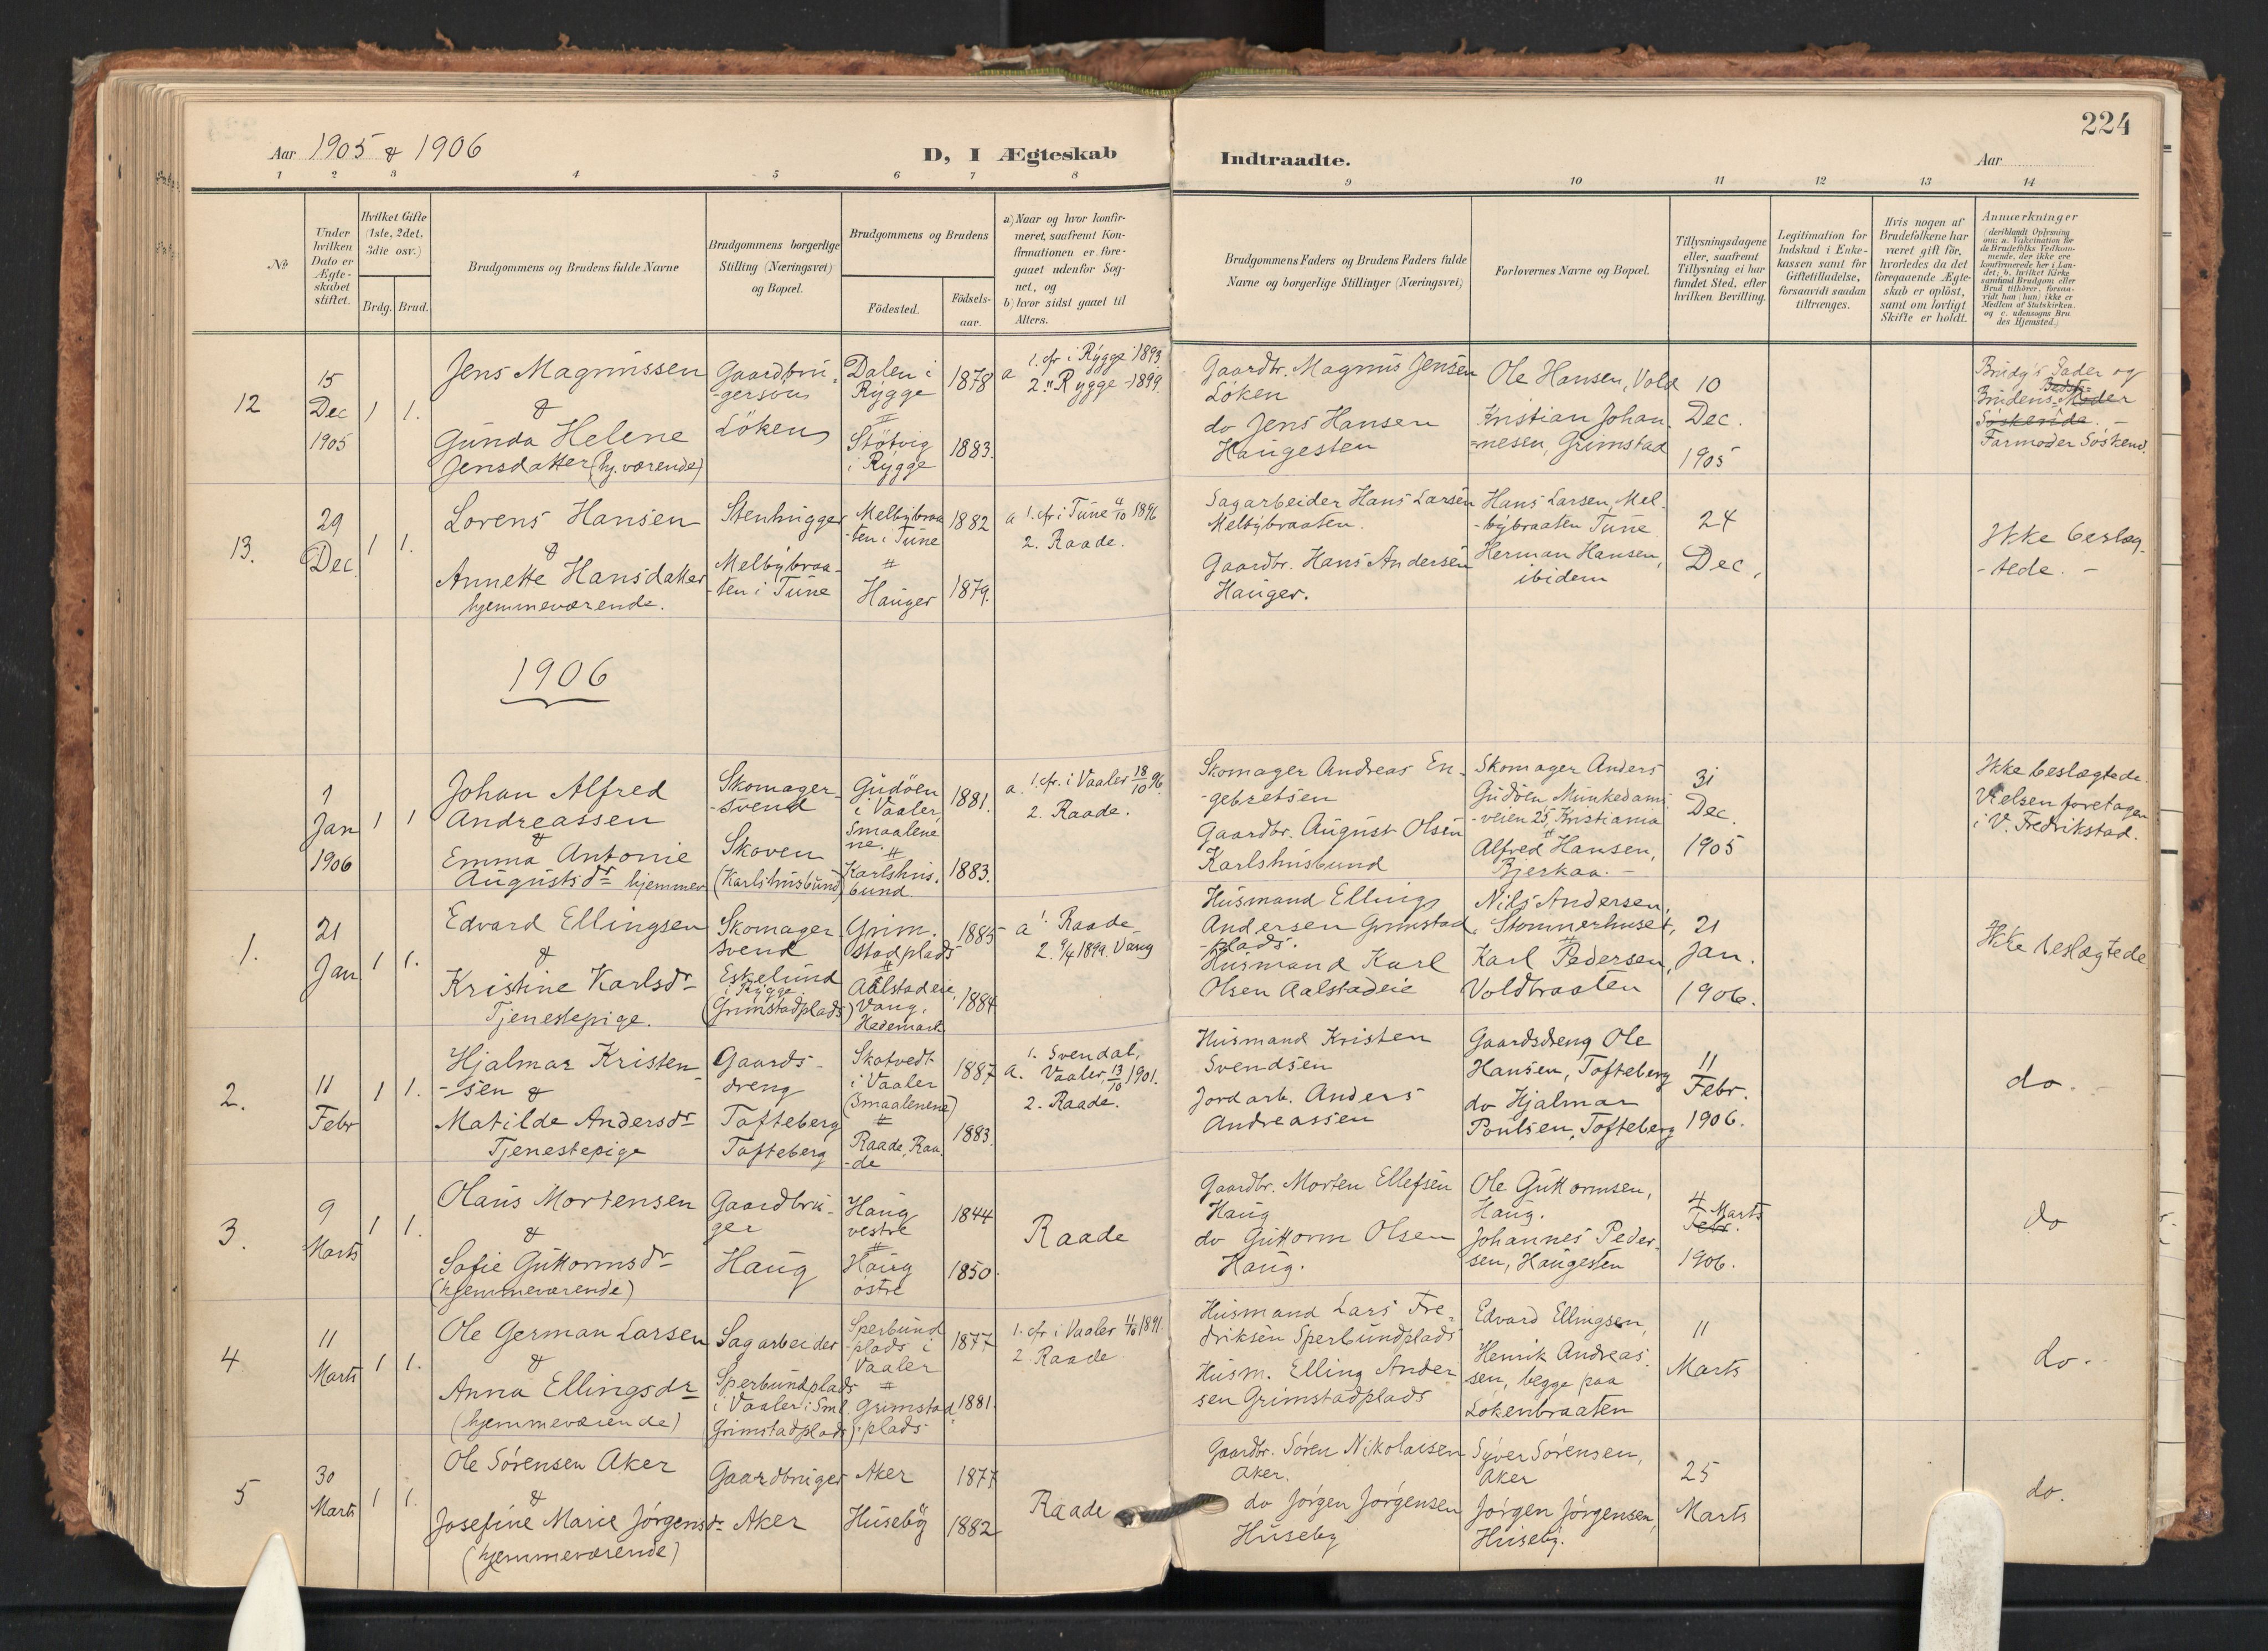 224
Aar 1905 & 1906
D, I Ægteskab
Indtraadte.
Aar
1 2 3 4 5 6 7 8
9 10 11 12 13 14
No
Under
hvilken
Dato er
Ægte-
skabet
stiftet.
Hvilket Gifte
(1ste, 2det,
3die osv.)
Brdg. Brud.
Brudgommens og Brudens fulde Navne
Brudgommens borgerlige
Stilling (Næringsvei)
og Bopæl.
Brudgommens og Brudens
Födested.
Födsels-
aar.
a) Naar og hvor konfir-
meret, saafremt Kon-
firmationen er fore-
gaaet udenfor Sog-
net, og
b) hvor sidst gaaet til
Alters.
Brudgommens Faders og Brudens Faders fulde
Navne og borgerlige Stillinger (Næringsvei)
Forlovernes Navne og Bopæl.
Tillysningsdagene
eller, saafremt
Tillysning ei har
fundet Sted, efter
hvilken Bevilling.
Legitimation for
Indskud i Enke-
kassen samt for
Giftetilladelse,
forsaavidt saadan
tiltrænges.
Hvis nogen af
Brudefolkene har
været gift för,
hvorledes da det
foregaaende Ægte-
skab er oplöst,
samt om lovligt
Skifte er holdt.
Anmærkninger
(deriblandt Oplysning
om: a. Vakcination for
de Brudefolks Vedkom-
mende, der ikke ere
konfirmerede her i Lan-
det; b. hvilket Kirke-
samfund Brudgom eller
Brud tilhörer, forsaa-
vidt han (hun) ikke er
Medlem af Statskirken.
og c. udensogns Bru-
des Hjemsted.)
12
15
Dec
1905
1 1.
Jens Magnussen
&
Gunda Helene
Jensdatter (hj. værende)
Gaardbru-
-gersøn
Löken
Dalen i
Rygge
Støtvig
i Rygge
1878
1883.
a 1. cfr i Rygge 1893
2. " Rygge - 1899.
Gaardbr. Magnus Jensen
Löken
do Jens Hansen
Haugesten
Ole Hansen, Vold
Kristian Johan-
=nesen, Grimstad
10
Dec.
1905
Brudg's Fader og
Bedste=
Brudens Moder
Søskende. -
Farmoder Söskend.
13.
29
Dec
1 1.
Lorens Hansen
&
Annette Hansdatter
hjemmeværende.
Stenhugger
Melbybraa-
-ten i Tune
Melbybraa
-ten i Tune
Hauger
1882
1879.
a 1. cfr i Tune 4/10 1896
2. Raade.
Sagarbeider Hans Larsen
Melbybraaten.
Gaardbr. Hans Andersen
Hauger.
Hans Larsen, Mel-
-bybraaten Tune
Herman Hansen,
ibidem
24
Dec.
Ikke beslæg-
-tede. -
1906
1
Jan
1906
1 1
Johan Alfred
Andreassen
&
Emma Antonie
Augustsdr hjemmev
Skomager-
-svend
Skoven
(Karlshusbund)
Gudöen
i Vaaler,
Smaalene
ne.
Karlshus-
bund.
1881.
1883.
a. 1. cfr. i Vaaler 18/10 96.
2. Raade.
Skomager Andreas En-
-gebretsen
Gaardbr. August Olsen
Karlshusbund
Skomager Anders
Gudöen Munkedams-
-veien 25, Kristiania
Alfred Hansen,
Bjerkaa. -
31
Dec.
1905
Ikke beslægtede.
Vielsen foretagen
i V. Fredrikstad.
1.
21
Jan
1 1.
Edvard Ellingsen
&
Kristine Karlsdr
Tjenestepige.
Skomager-
svend
Eskelund
i Rygge
(Grimstadplads)
Grim-
stadplads
Aalstadeie,
Vang,
Hedemark
1885
1884
a 1. Raade
2. 9/4 1899. Vang
Husmand Elling
Andersen Grimstad
-plads.
Husmand Karl
Olsen Aalstadeie
Nils Andersen,
Stommerhuset,
Karl Pedersen,
Voldbraaten
21
Jan.
1906.
Ikke beslægtede
2.
11
Febr
1 1.
Hjalmar Kristen
-sen &
Matilde Andersdr
Tjenestepige
Gaards-
dreng
Tofteberg
Tofteberg
Skatvedt
i Vaaler
(Smaalenene)
Raade, Raa-
-de
1887
1883.
1. Svendal,
a. Vaaler, 13/10 1901.
2. Raade.
Husmand Kristen
Svendsen
Jordarb. Anders
Andreassen
Gaardsdreng Ole
Hansen, Tofteberg
do Hjalmar
Poulsen, Tofteberg
11
Febr.
1906.
do. -
3.
9
Marts
1 1.
Olaus Mortensen
&
Sofie Guttormsdr
(hjemmeværende)
Gaardbru-
ger
Haug
Haug
vestre
Haug
østre
1844
1850.
Raade
Gaardbr. Morten Ellefsen
Haug
do Guttorm Olsen
Haug.
Ole Guttormsen,
Haug.
Johannes Peder-
sen, Haugesten
4
Marts
Febr.
1906.
do
4
11
Marts
1 1.
Ole German Larsen
&
Anna Ellingsdr
(hjemmeværende)
Sagarbeider
Sperbundplads
i Vaaler i Sml.
(Grimstadplads)
Sperbund
-plads i
Vaaler
Grimstad
-plads
1877
1881.
1. cfr. i Vaaler 4/10 1891.
2. Raade
Husmand Lars Fre-
driksen Sperbundplads
Husm. Elling Ander
sen Grimstadplads
Edvard Ellingsen,
Henrik Andreas-
sen, begge paa
Løkenbraaten
11
Marts
do.
5
30
Marts
1 1.
Ole Sörensen Aker
&
Josefine Marie Jörgensdr
(hjemmeværende)
Gaardbruger
Aker
Aker
Huseby
1877
1882
Raade
Gaardbr. Sören Nikolaisen
Aker.
do Jörgen Jörgensen
Huseby
Syver Sörensen,
Aker
Jörgen Jörgensen,
Huseby.
25
Marts
do.